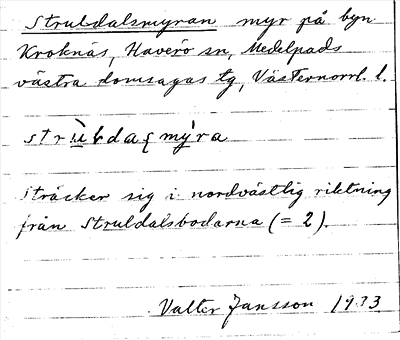 Struldalsmyran myr på byn
Kroknäs, Haverö sn, Medelpads
västra domsagas tg, Västernorrl. l.
sträcker sig i nordvästlig riktning
från Struldalsbodarna (= 2).
Valter Jansson 1933